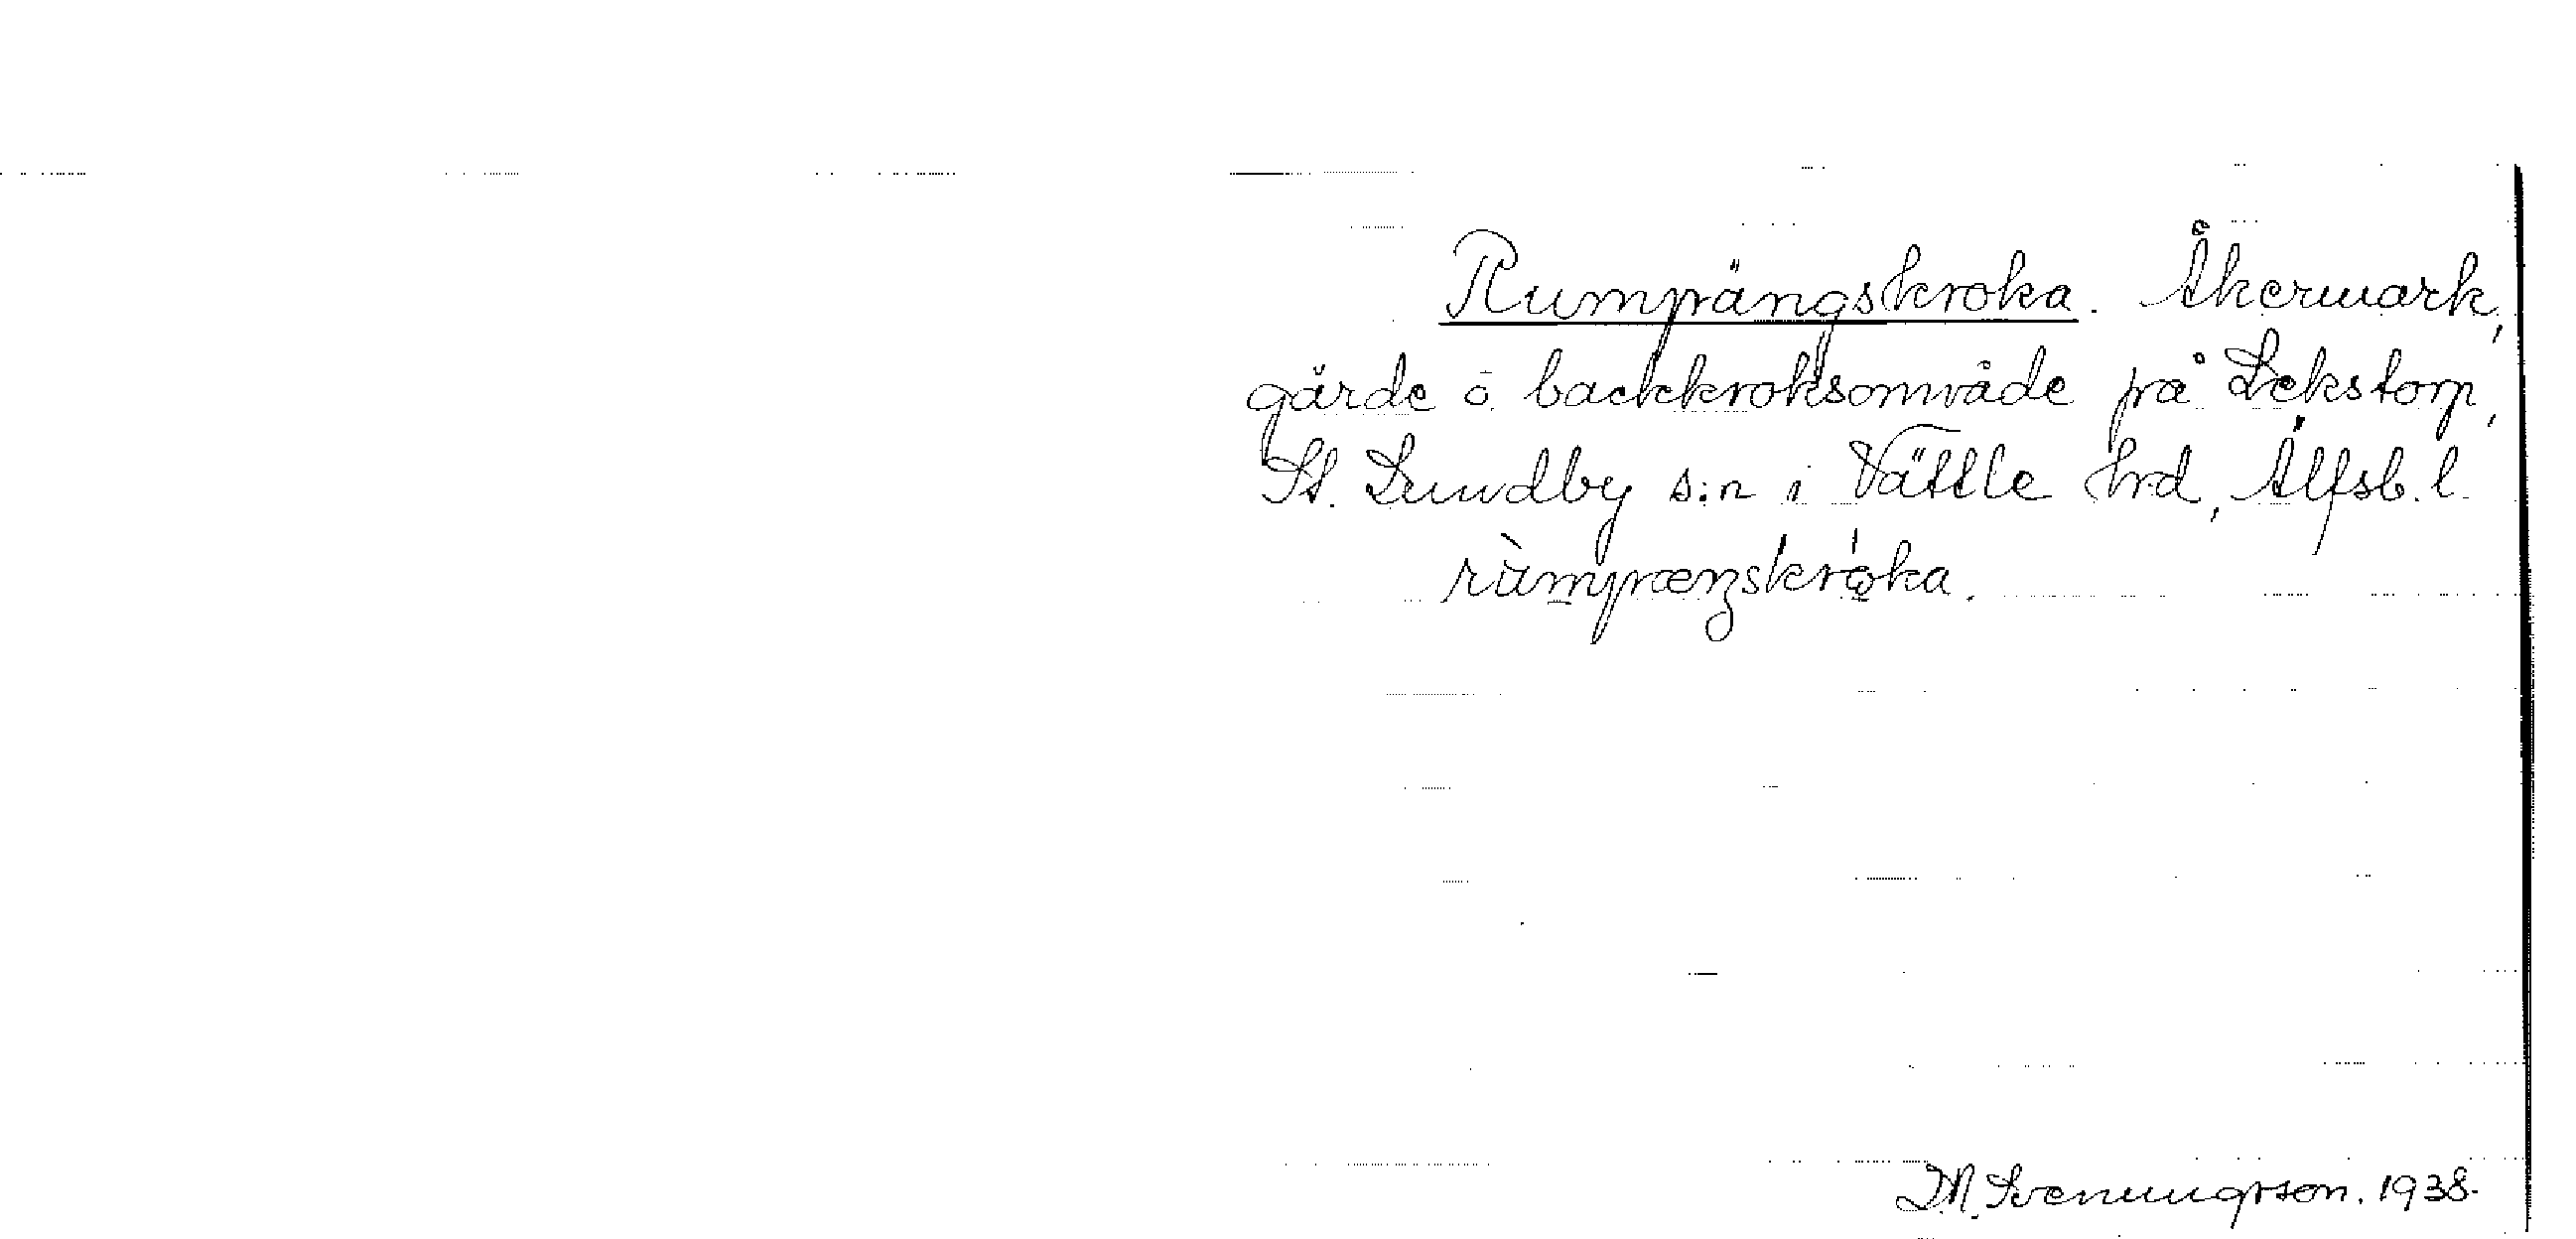 Rumpängskroka. Åkermark,
gärde o. backkroksområde på Lekstorp,
St. Lundby s:n i Vättle hrd, Älfsb. l.
rùmpæŋskròka.
D.N. Svenungsson. 1938.